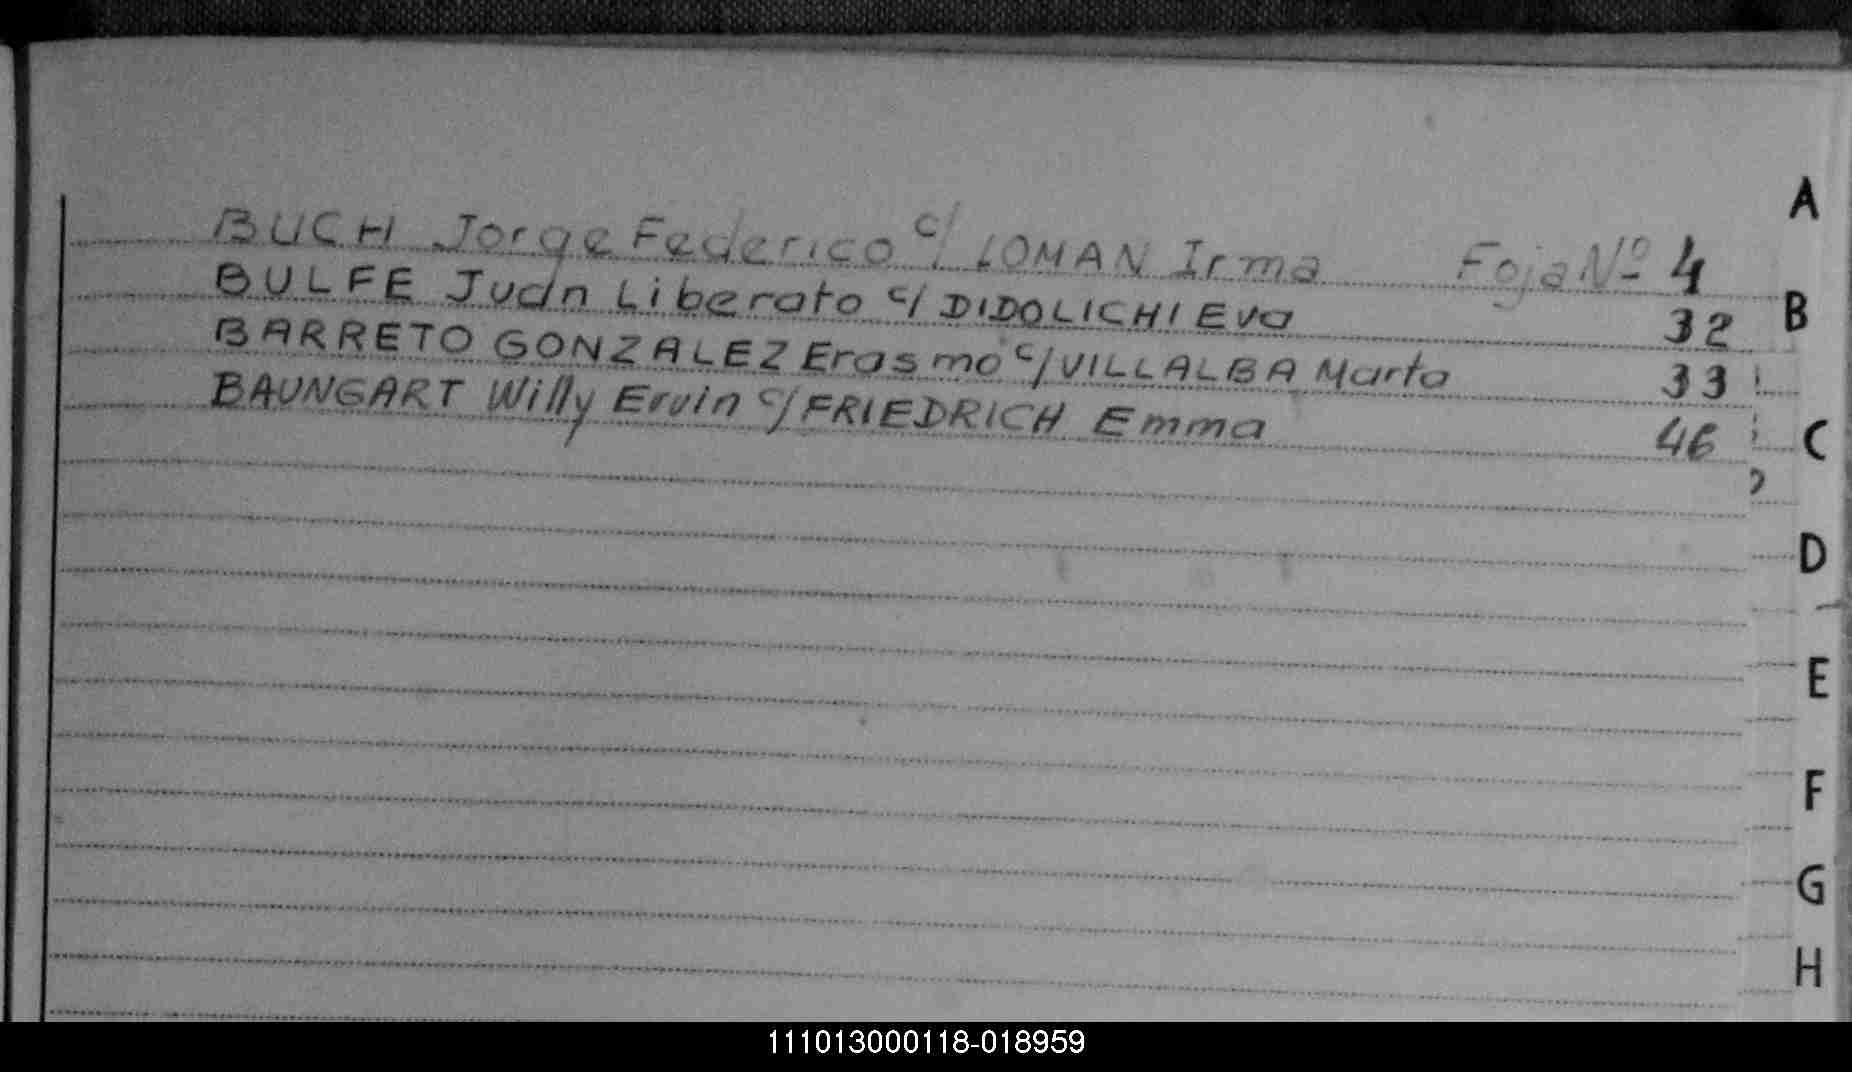 BUCH Jorge Federico c/ LOMAN Irma Foja Nº 4
BULFE Juan Liberato c/ DIDOLICHI Eva 32
BARRETO GONZALEZ Erasmo c/ VILLALBA Marta 33
BAUNGART Willy Ervin c/ FRIEDRICH Emma 46
A
B
C
D
E
F
G
H
111013000118-018959